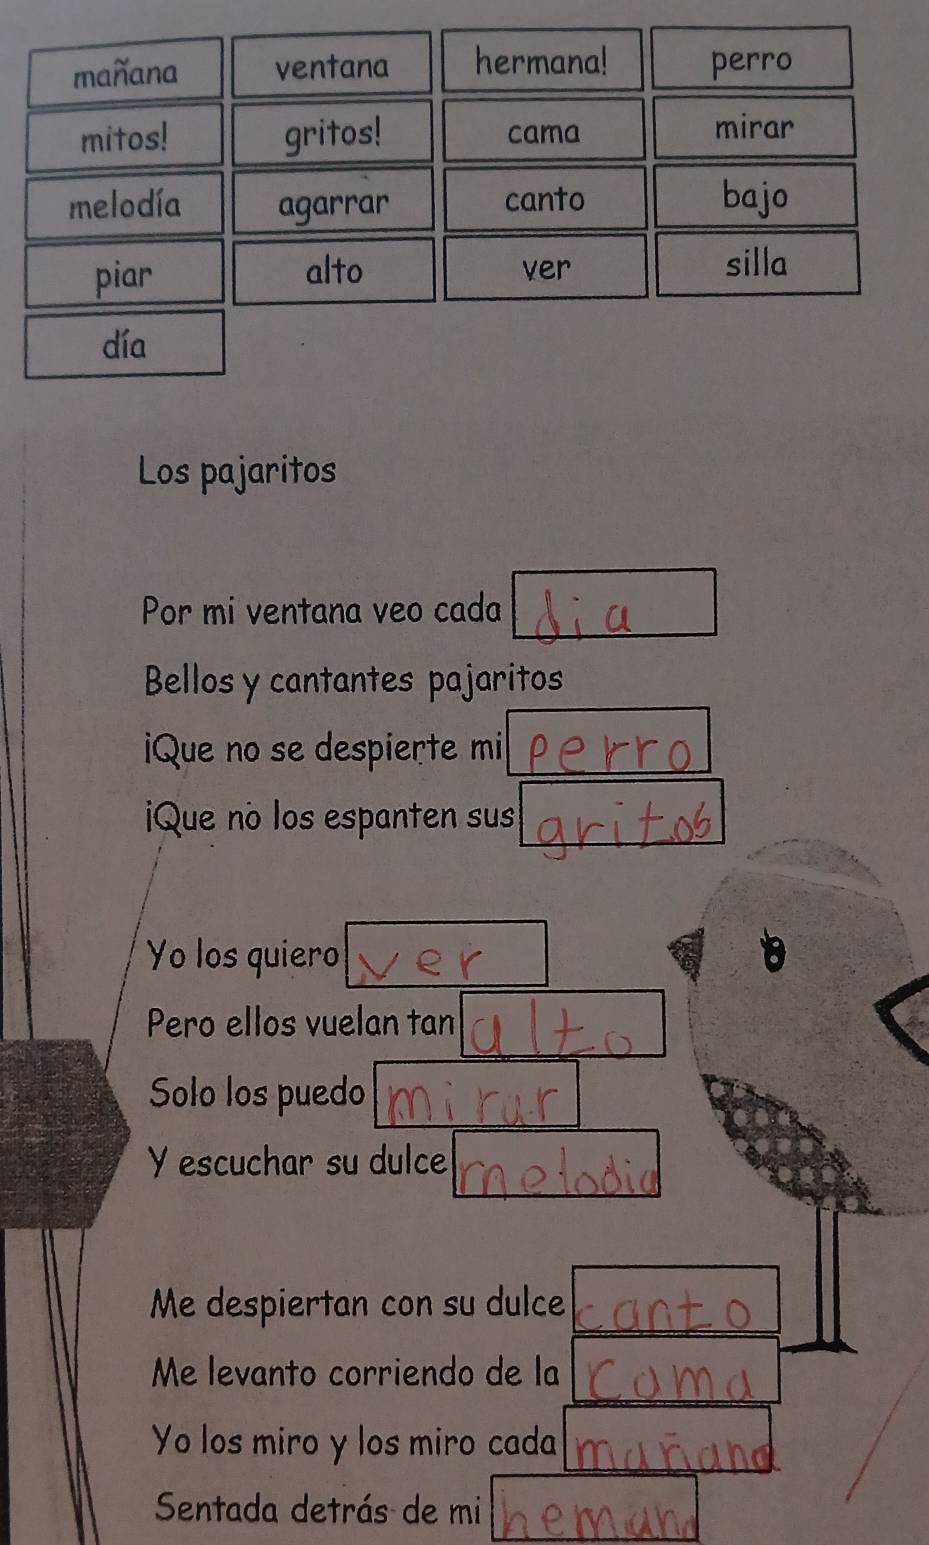 mañana ventana hermana! perro
mitos! gritos! cama mirar
melodía agarrar canto bajo
piar alto ver silla
día
Los pajaritos
Por mi ventana veo cada dia
Bellos y cantantes pajaritos
¡Que no se despierte mi perro
¡Que no los espanten sus gritos
Yo los quiero ver
Pero ellos vuelan tan alto
Solo los puedo mirar
Y escuchar su dulce melodia
Me despiertan con su dulce canto
Me levanto corriendo de la cama
Yo los miro y los miro cada mañana
Sentada detrás de mi hemana